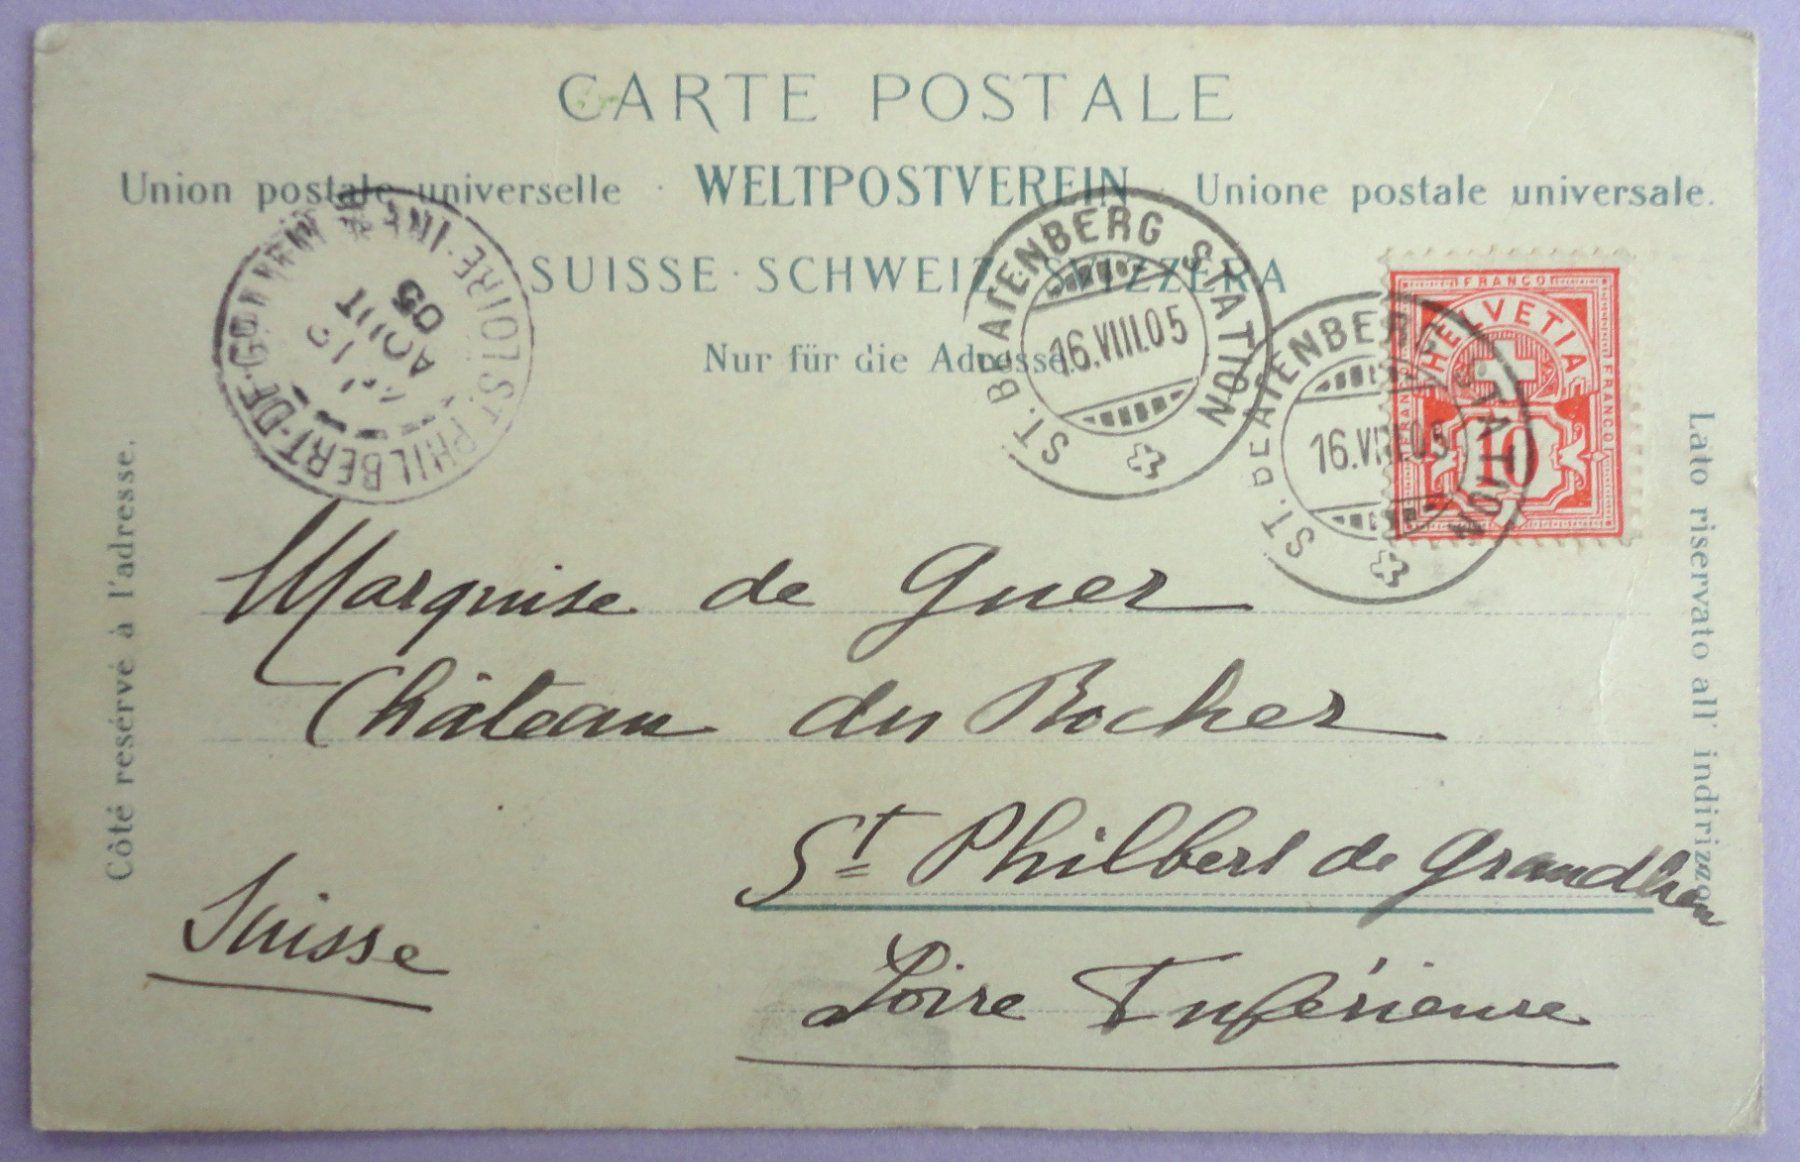 CARTE POSTALE
Union postale universelle · WELTPOSTVEREIN · Unione postale universale.
SUISSE · SCHWEIZ · SVIZZERA
Nur für die Adresse.
Côté resérvé à l'adresse.
Lato riservato all' indirizzo.
ST. PHILBERT-DE-G LOIRE-INF
AOUT
05
ST. BEATENBERG STATION
16.VIII.05
ST. BEATENBERG STATION
16.VIII.05
FRANCO
FRANCO
FRANCO
HELVETIA
10
Marquise de Guer
Château du Rocher
St Philbert de Grandlieu
Suisse
Loire Inférieure